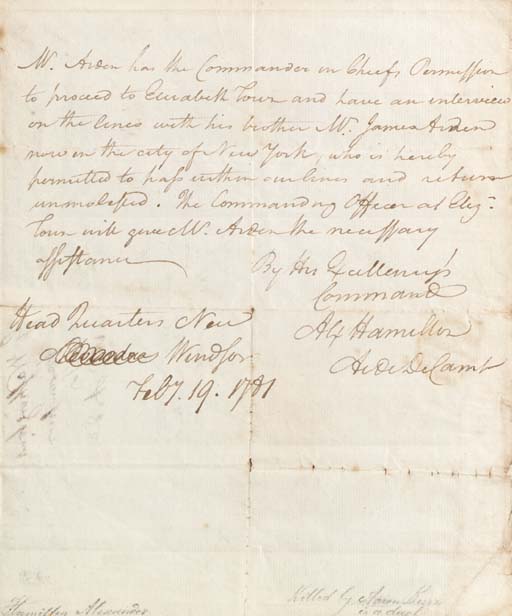 Mr. Arden has the Commander in Chiefs Permission
to proceed to Elizabeth Town and have an interview
on the lines with his brother Mr. James Arden
now in the city of New York, who is hereby
permitted to pass within our lines and return
unmolested. The Commanding Officer at Eliz.
Town will give Mr. Arden the necessary
assistance
By His Excellency's
Command
Alx Hamilton
Aide De Camp
Head Quarters New
Windsor
Feby. 19. 1781
Hamilton Alexander
Killed by Aaron Burr
in a duel